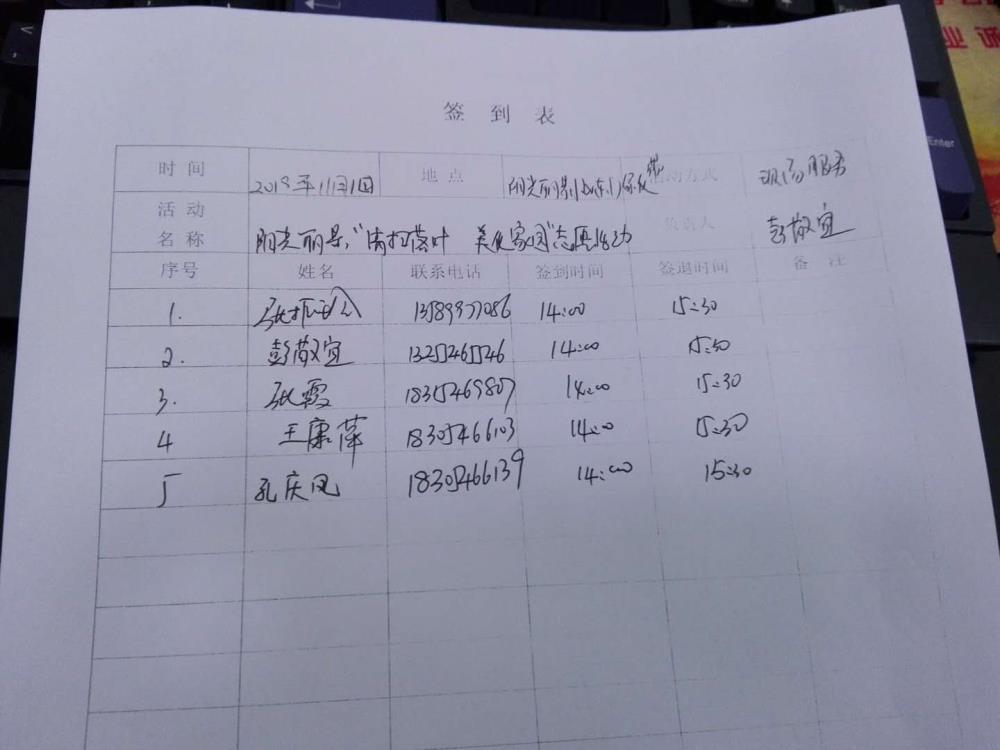 签 到 表
时 间 2019年11月1日 地 点 阳光丽景 活动方式 现场服务
活 动 名 称 阳光丽景,"清扫落叶 美化家园"志愿活动 负责人 彭敬宜
序号 姓名 联系电话 签到时间 签退时间 备 注
1. 13589977086 14:00 15:30
2. 彭敬宜 13255461546 14:00 15:30
3. 张霞 18315469807 14:00 15:30
4 王康萍 18305466103 14:00 15:30
5 孔庆凤 18305466139 14:00 15:30
Enter